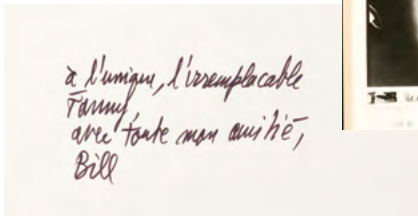 à l'unique, l'irremplacable
Fanny
avec toute mon amitié,
Bill